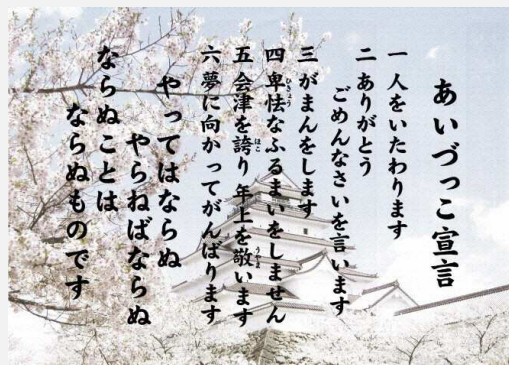 あいづっこ宣言
一 人をいたわります
二 ありがとう
ごめんなさいを言います
三 がまんをします
四 卑怯なふるまいをしません
ひきょう
五 会津を誇り年上を敬います
ほこ
うやま
六 夢に向かってがんばります
やってはならぬ
やらねばならぬ
ならぬことは
ならぬものです